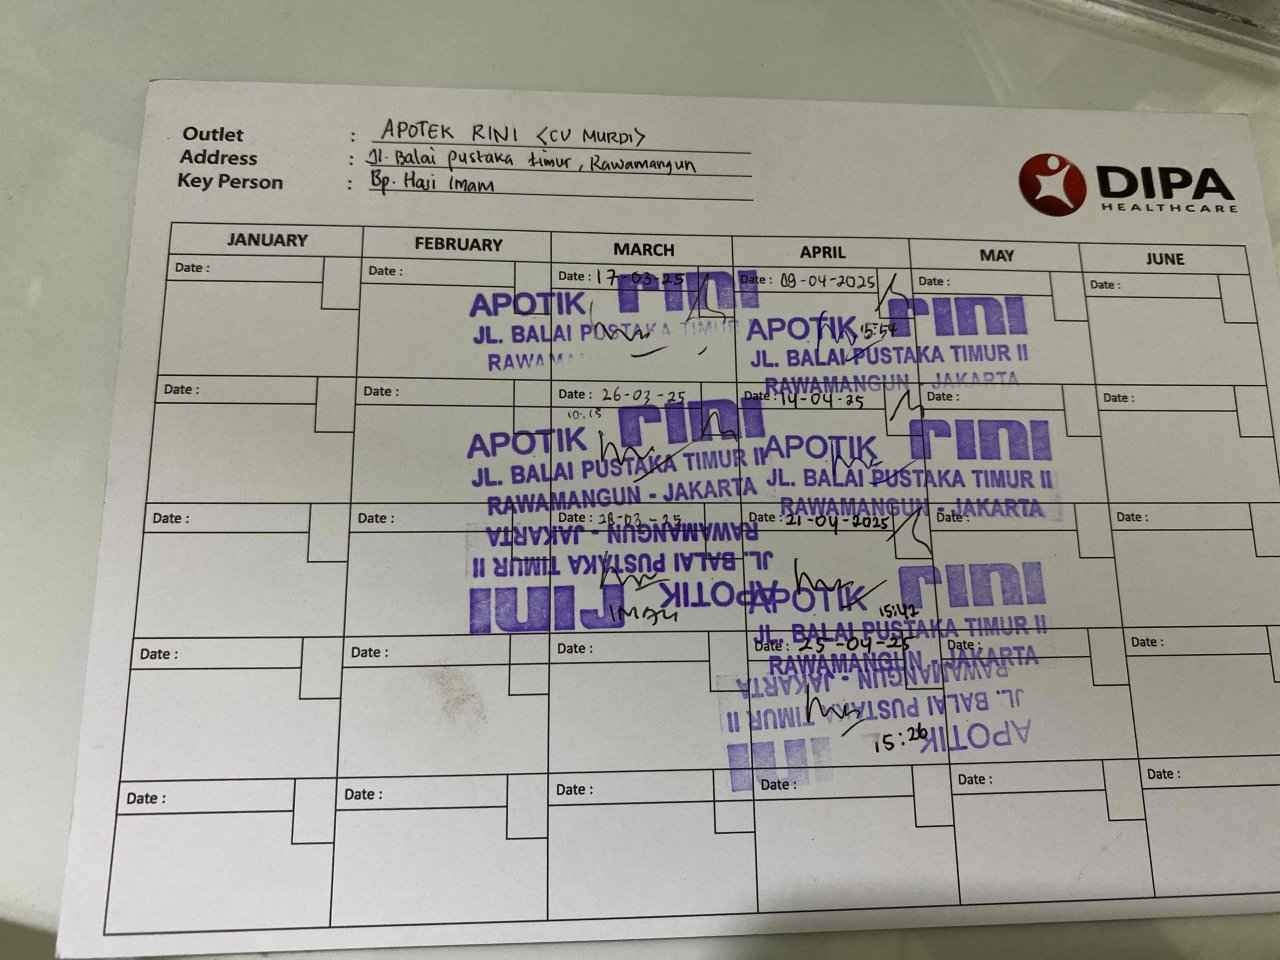 Outlet : APOTEK RINI <CV MURDI>
Address : Jl. Balai Pustaka timur, Rawamangun
Key Person : Bp. Haji Imam
DIPA
HEALTHCARE
JANUARY FEBRUARY MARCH APRIL MAY JUNE
Date : Date : Date : 17-03-25 Date : 09-04-2025 Date : Date :
APOTIK rini
JL. BALAI PUSTAKA TIMUR
RAWAM
APOTIK rini
15:54
JL. BALAI PUSTAKA TIMUR II
RAWAMANGUN - JAKARTA
Date : Date : Date : 26-03-25 Date : 14-04-25 Date : Date :
10:15
APOTIK rini
JL. BALAI PUSTAKA TIMUR II
RAWAMANGUN - JAKARTA
APOTIK rini
JL. BALAI PUSTAKA TIMUR II
RAWAMANGUN - JAKARTA
Date : Date : Date : 28-03-25 Date : 21-04-2025 Date : Date :
APOTIK rini
JL. BALAI PUSTAKA TIMUR II
RAWAMANGUN - JAKARTA
APOTIK rini
15:42
JL. BALAI PUSTAKA TIMUR II
RAWAMANGUN - JAKARTA
Date : Date : Date : Date : 25-04-25 Date : Date :
APOTIK rini
JL. BALAI PUSTAKA TIMUR II
RAWAMANGUN - JAKARTA
15:26
Date : Date : Date : Date : Date : Date :